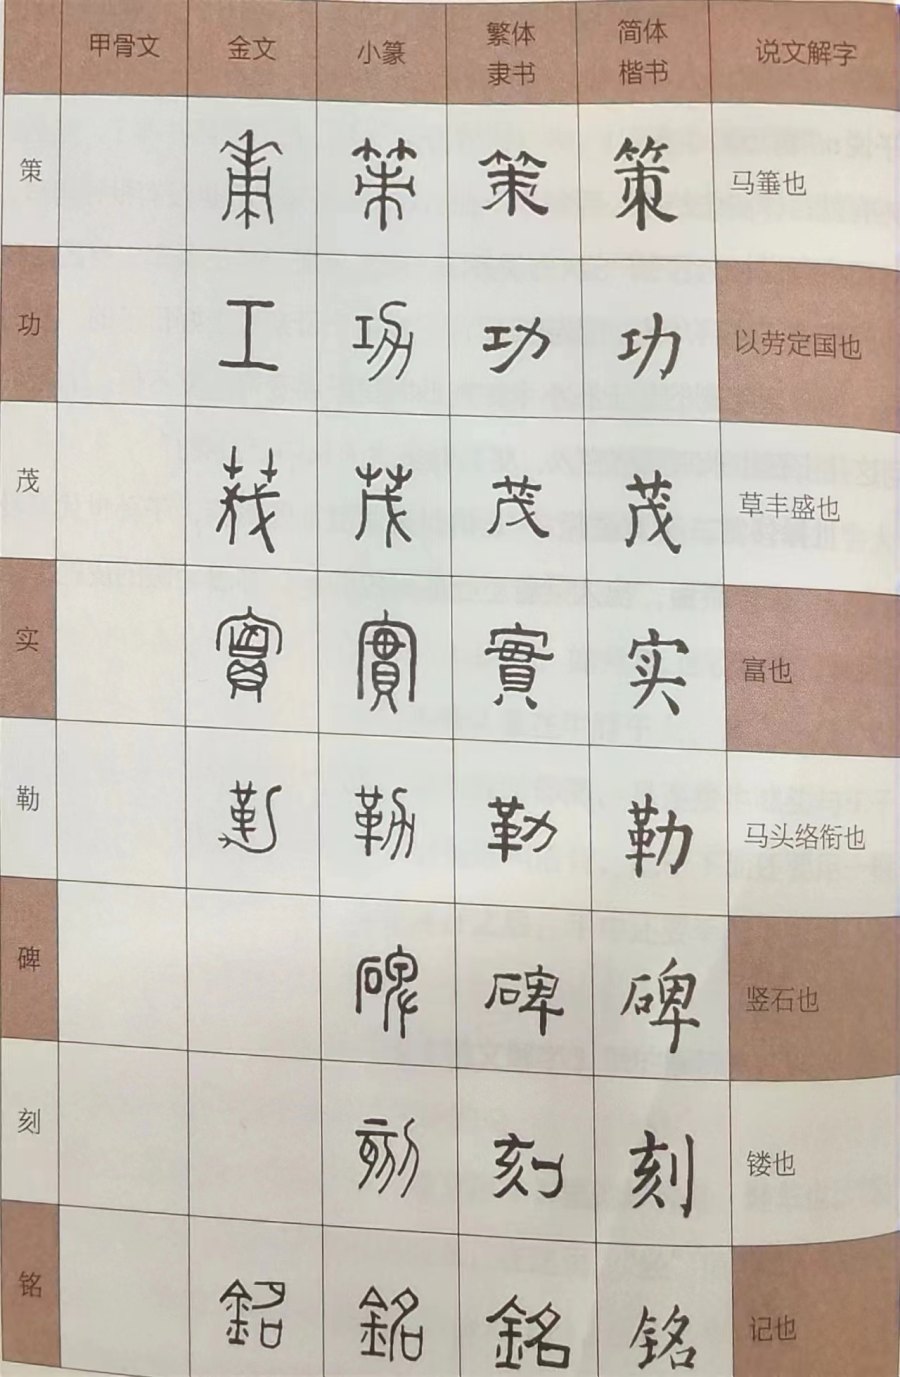 甲骨文 金文 小篆 繁体隶书 简体楷书 说文解字
策 策 策 策 策 马箠也
功 工 功 功 功 以劳定国也
茂 茂 茂 茂 茂 草丰盛也
实 實 實 實 实 富也
勒 勒 勒 勒 勒 马头络衔也
碑 碑 碑 碑 竖石也
刻 刻 刻 刻 镂也
铭 銘 銘 銘 铭 记也